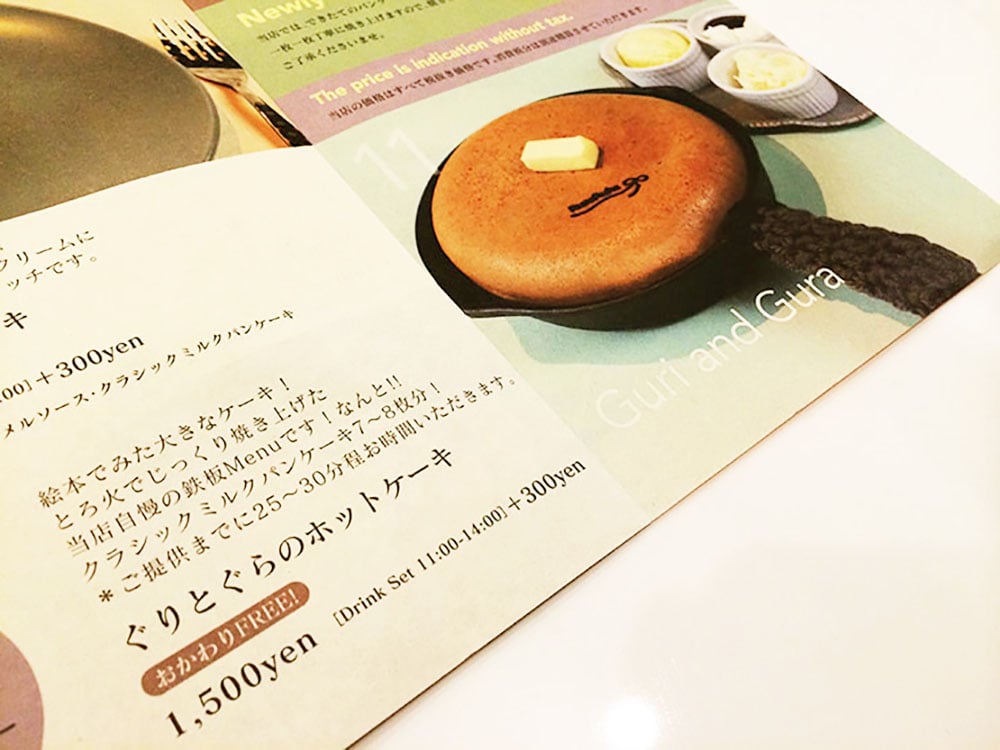 Newly
当店では、できたてのパンケ
一枚一枚丁寧に焼き上げますので、焼き
ご了承くださいませ。
The price is indication without tax.
当店の価格はすべて税抜き価格です。消費税分は別途精算させていただきます。
11
Guri and Gura
クリームに
ッチです。
キ
:00]+300yen
メルソース・クラシックミルクパンケーキ
絵本でみた大きなケーキ!
とろ火でじっくり焼き上げた
当店自慢の鉄板Menuです!なんと!!
クラシックミルクパンケーキ7〜8枚分!
*ご提供までに25〜30分程お時間いただきます。
ぐりとぐらのホットケーキ
おかわりFREE!
1,500yen [Drink Set 11:00-14:00]+300yen